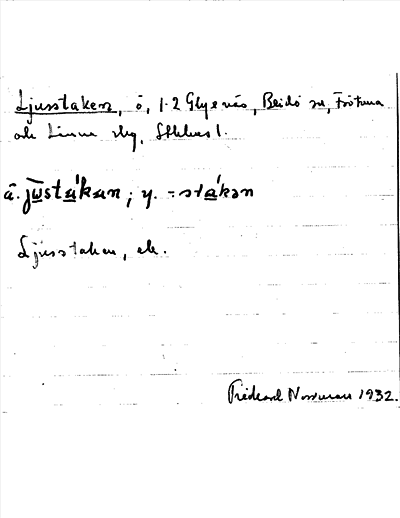 Ljusstaken, ö, 1·2 Glyxnäs, Blidö sn, Frötuna
och Länna skg, Sthlms l.
ä. jūstákan; y. =stákən
Ljusstaken, ek.
Fridhard Norrman 1932.